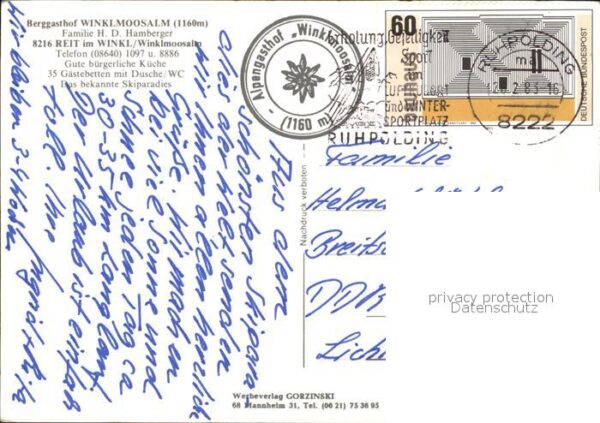 Berggasthof WINKLMOOSALM (1160m)
Familie H. D. Hamberger
8216 REIT im WINKL/Winklmoosalm
Telefon (08640) 1097 u. 8886
Gute bürgerliche Küche
35 Gästebetten mit Dusche/WC
Das bekannte Skiparadies
Alpengasthof „Winklmoosalm"
(1160 m)
Erholung, Geselligkeit
Sport
LUFTKURORT
und WINTER-
SPORTPLATZ
RUHPOLDING
60
DEUTSCHE BUNDESPOST
RUHPOLDING
8222
Aus dem
schönsten Skipara
dies der Welt senden
wir Ihnen allen herzliche
Grüße. Wir machen
bei viel Sonne und
Schnee jeden Tag ca
30-35 km Langlauf
Der Urlaub ist einfach
toll. Ihre
Wir bleiben 3-4 Wochen
Familie
Helm
Breits
DDR
Lich
Nachdruck verboten
Werbeverlag GORZINSKI
68 Mannheim 31, Tel. (06 21) 75 36 95
privacy protection
Datenschutz